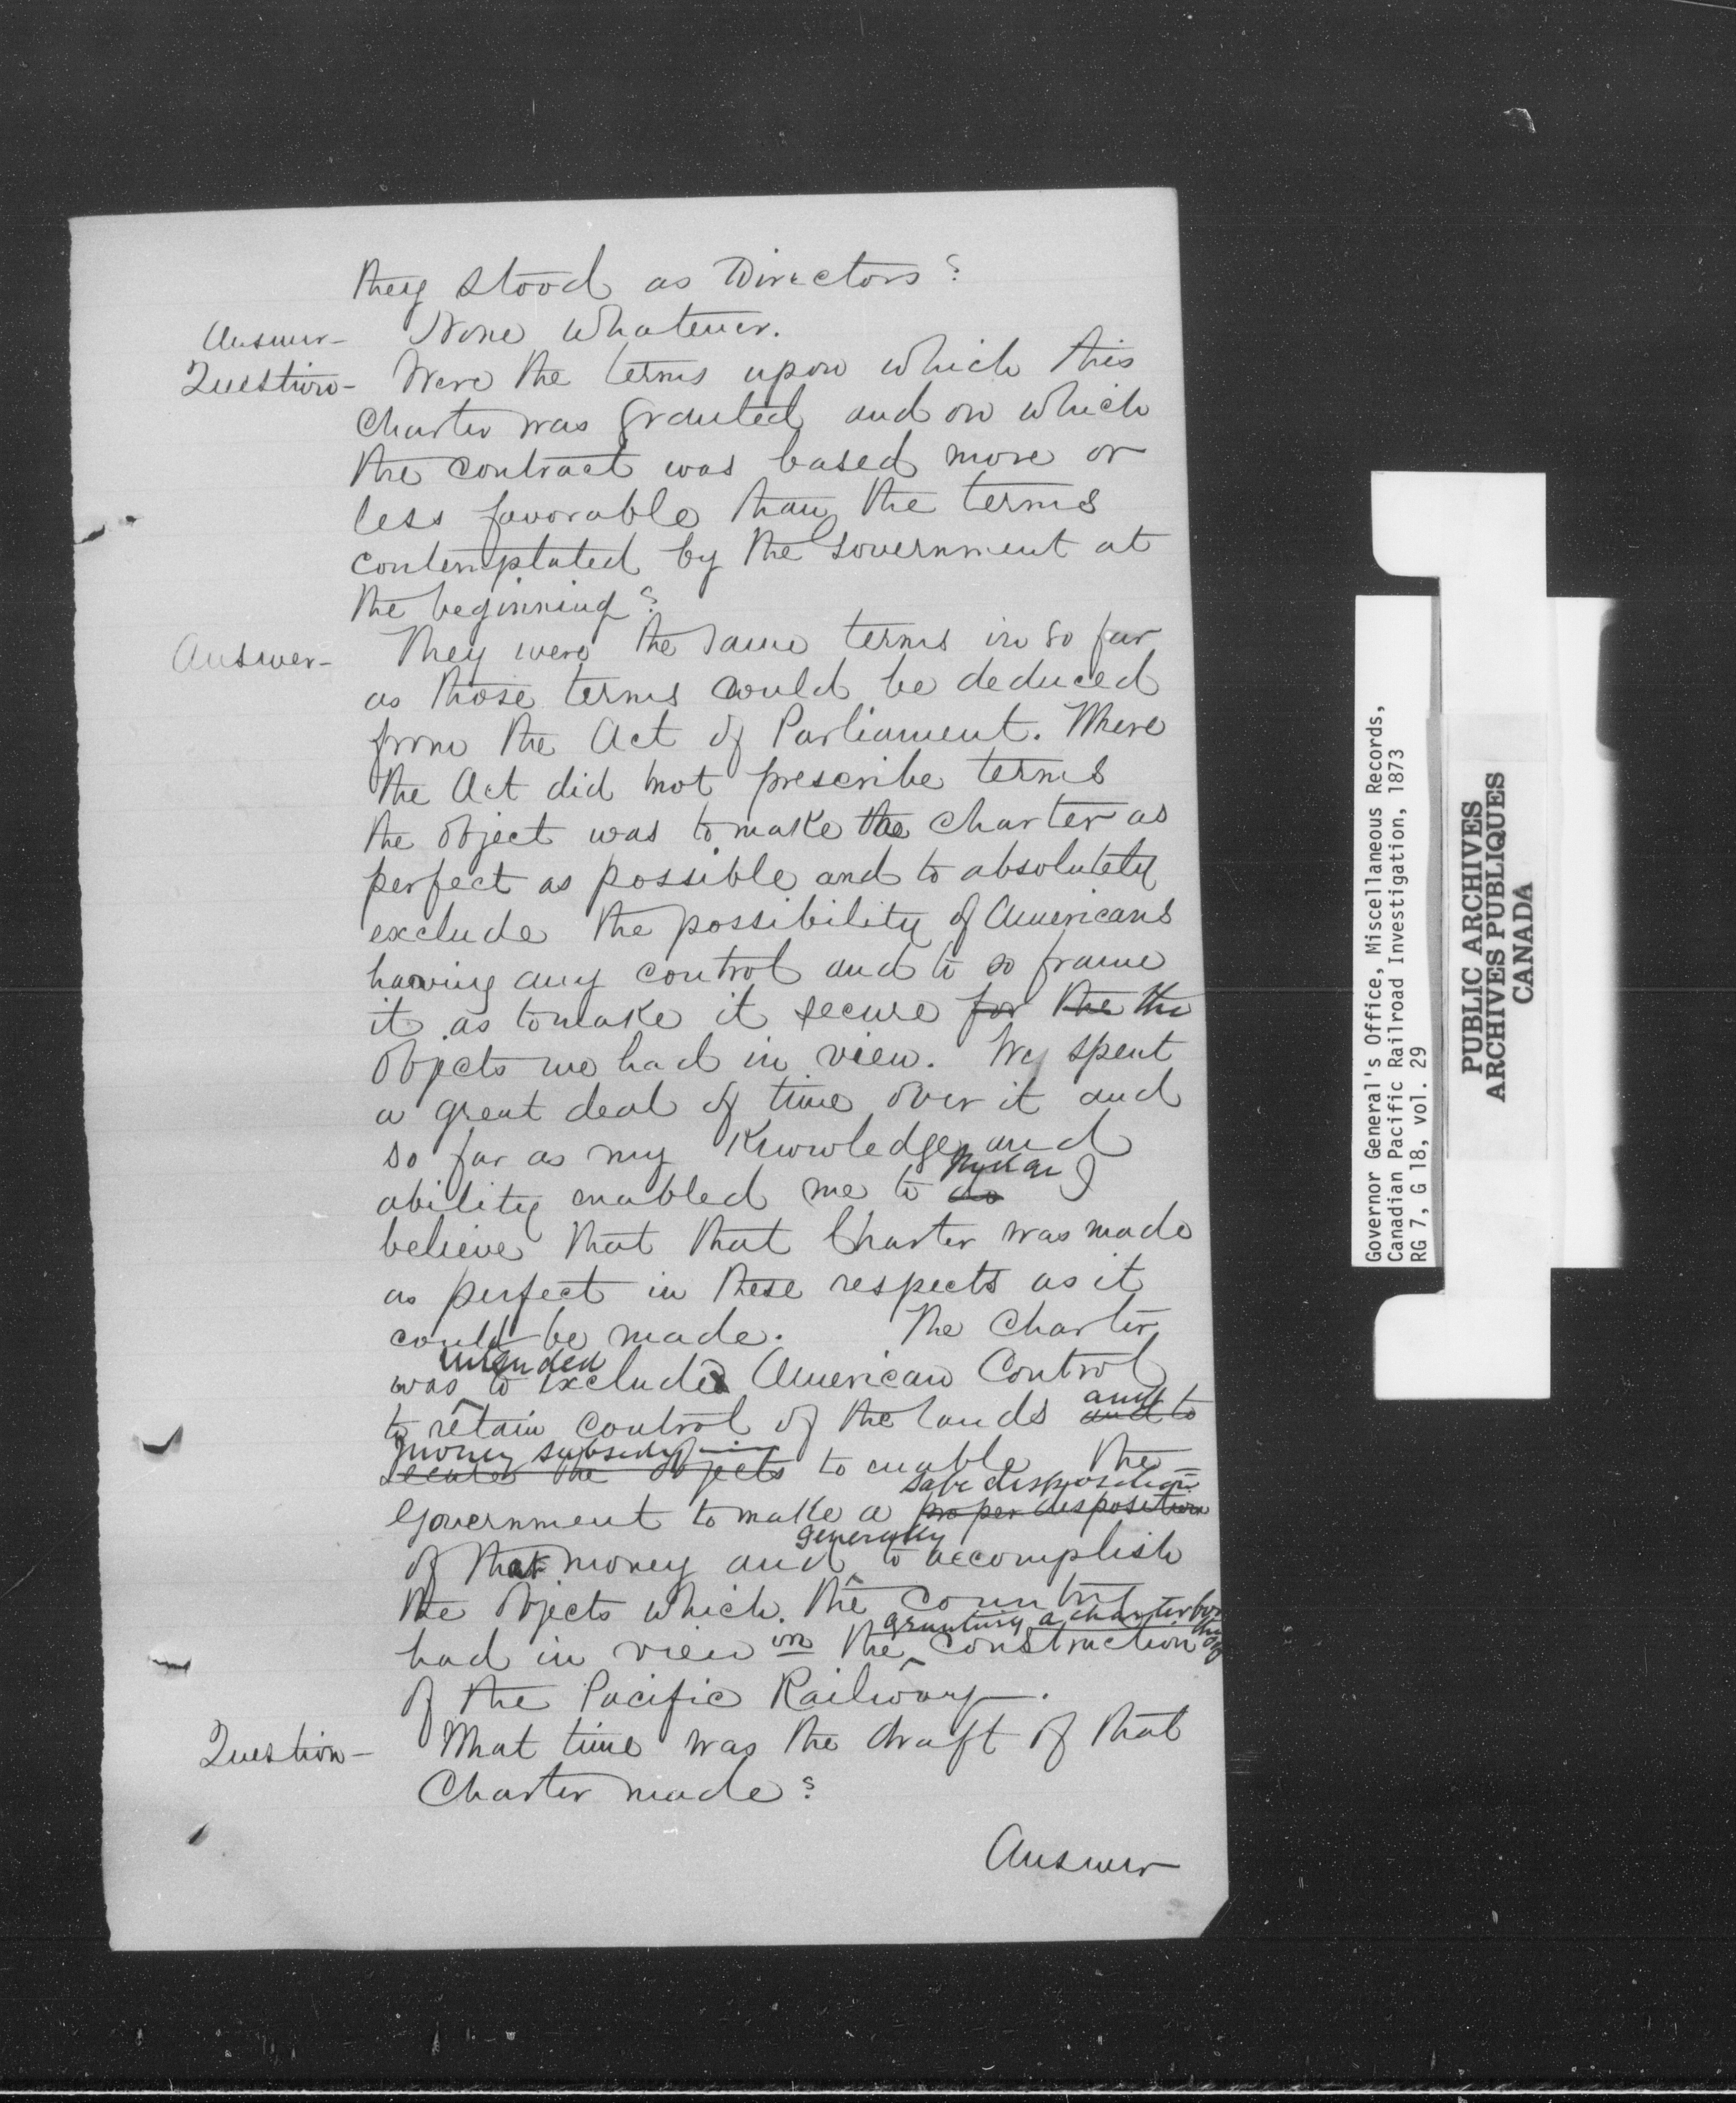 they stood as Directors?
Answer- None whatever.
Question- Were the terms upon which this
Charter was granted and on which
the contract was based more or
less favorable than the terms
contemplated by the Government at
the beginning?
Answer- They were the same terms in so far
as those terms could be deduced
from the Act of Parliament. Where
the Act did not prescribe terms
the object was to make the Charter as
perfect as possible and to absolutely
exclude the possibility of Americans
having any control and to so frame
it as to make it secure for the the
objects we had in view. We spent
a great deal of time over it and
so far as my knowledge and
ability enabled me to do I
believe that that Charter was made
as perfect in these respects as it
could be made. The Charter
intended
was to exclude American Control
to retain control of the lands and to
and
money subsidy
secure the objects to enable the
safe disposition
Government to make a proper disposition
generally
of that money and to accomplish
the objects which the Country
granting a charter for the
had in view in the construction of
of the Pacific Railway.
Question- What time was the draft of that
Charter made?
Answer
Governor General's Office, Miscellaneous Records,
Canadian Pacific Railroad Investigation, 1873
RG 7, G 18, vol. 29
PUBLIC ARCHIVES
ARCHIVES PUBLIQUES
CANADA